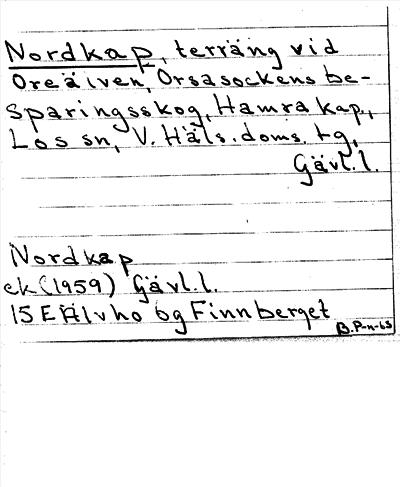 Nordkap, terräng vid
Oreälven, Orsasockens be-
sparingsskog, Hamra kap.,
Los sn, V. Häls. doms. tg,
Gävl.l.
Nordkap
ek (1959) Gävl.l.
15E Älvho 6g Finnberget
B.P-n-63